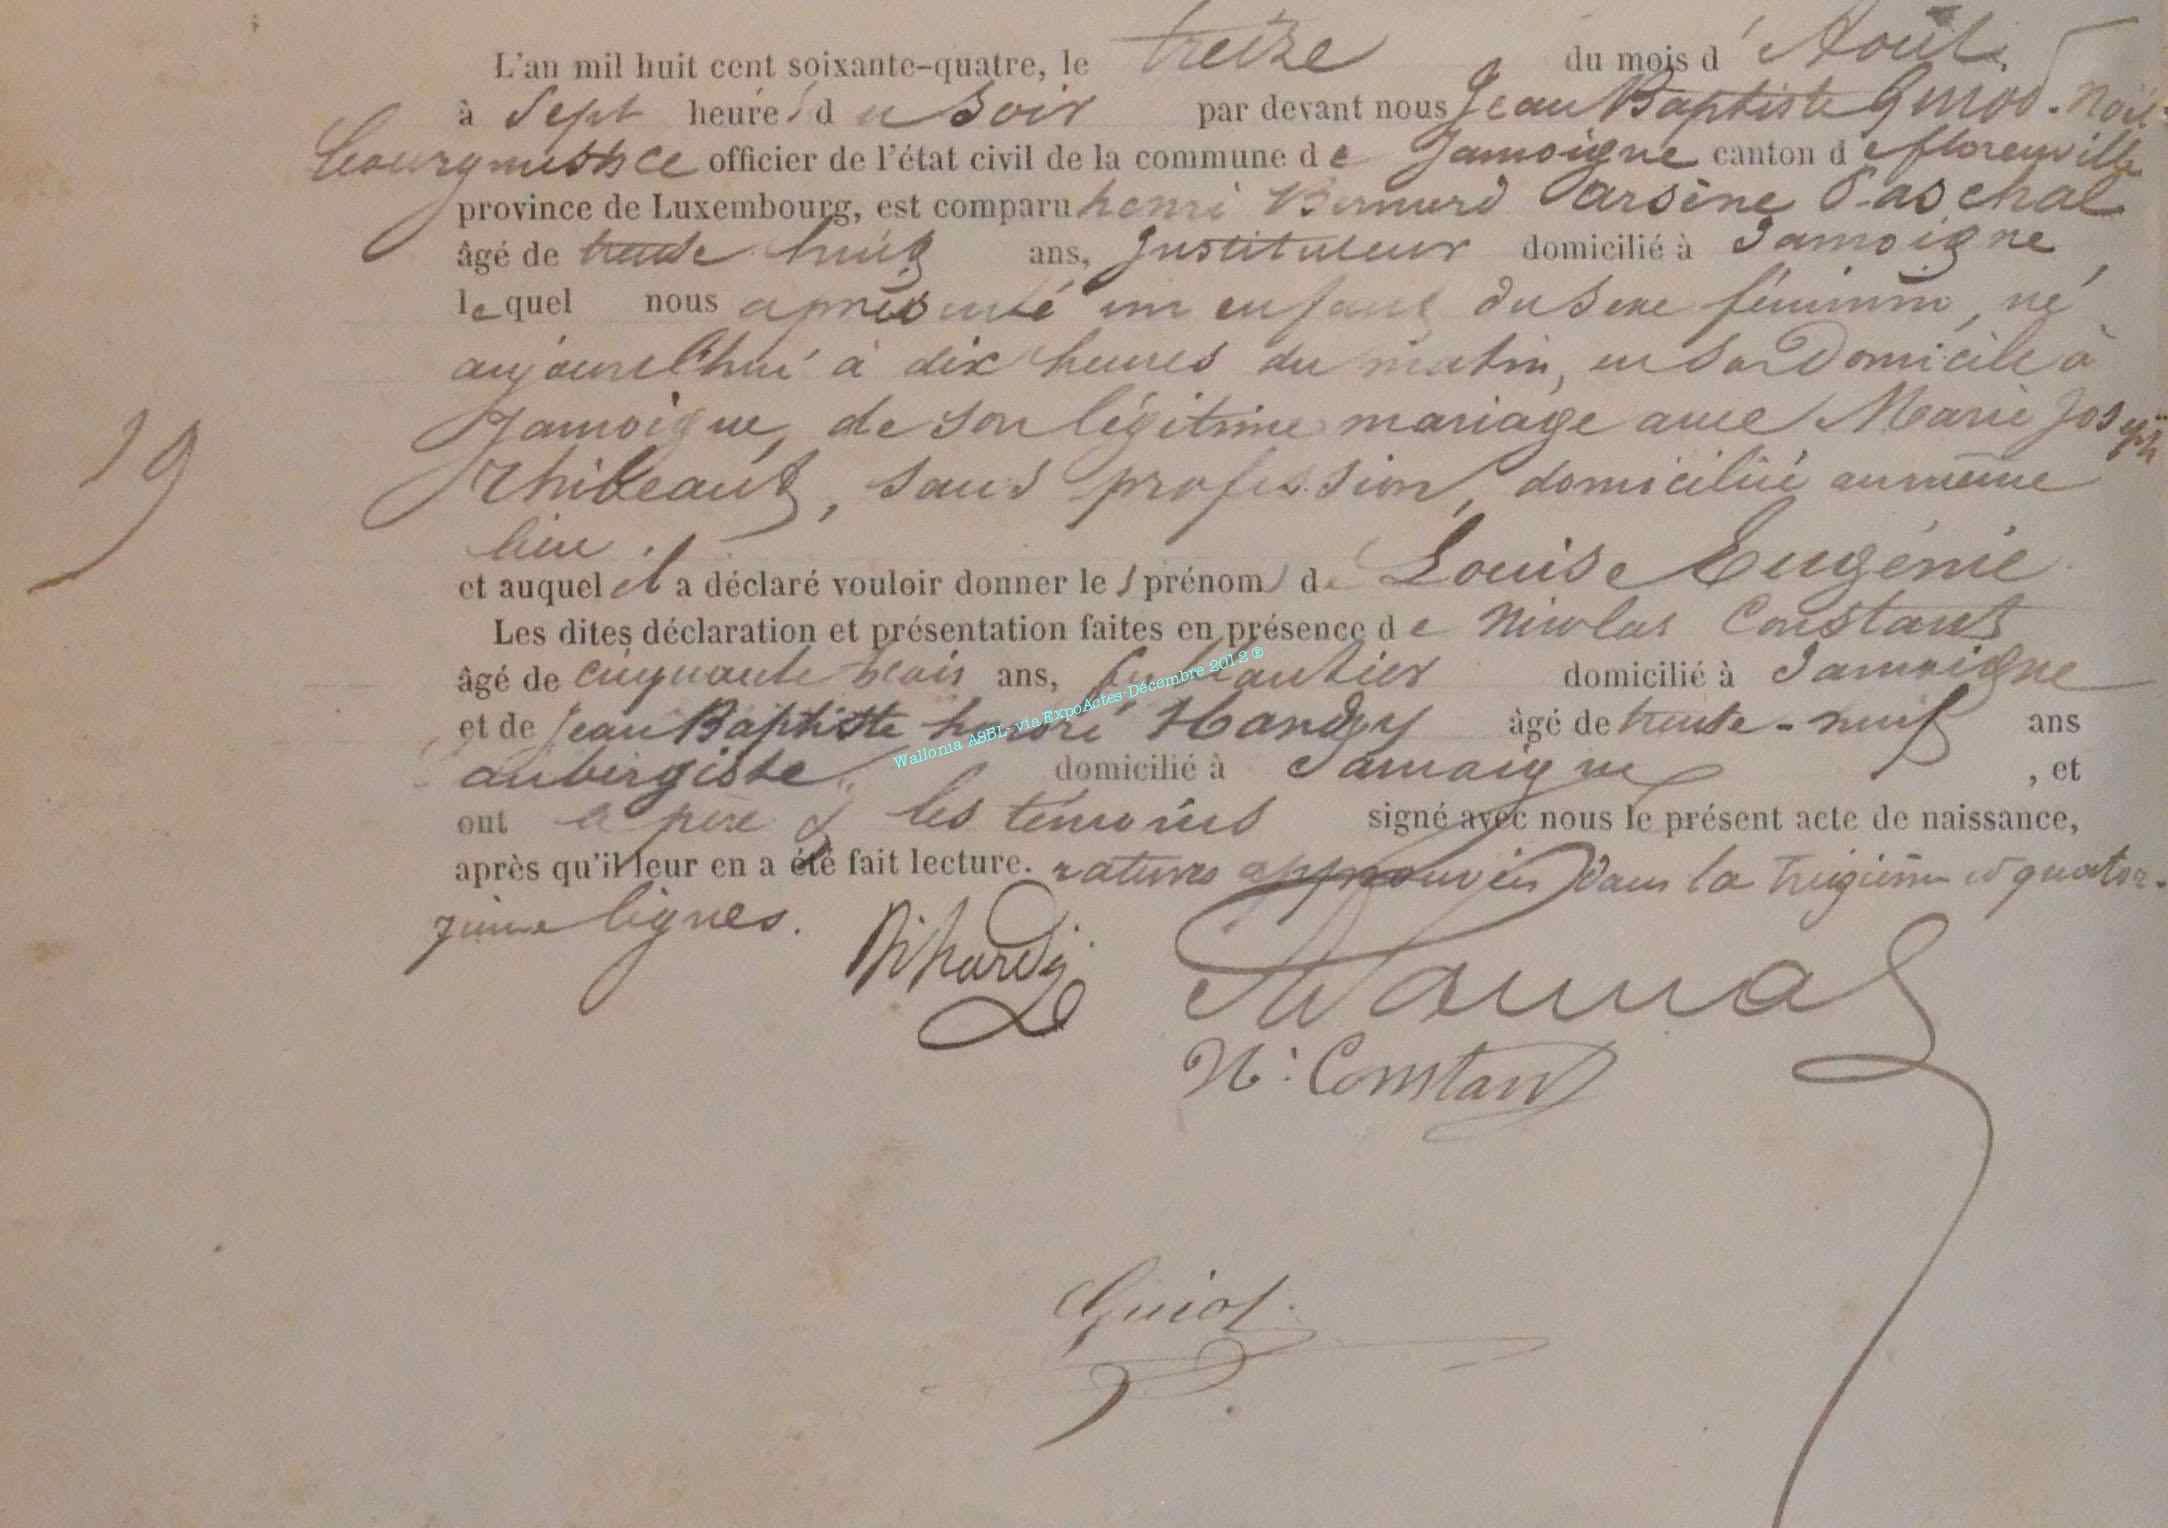 L'an mil huit cent soixante-quatre, le treize du mois d'Août
à Sept heures du Soir par devant nous Jean Baptiste Guiod. Noël
bourgmestre officier de l'état civil de la commune de Jamoigne canton de florenville
province de Luxembourg, est comparu henri Bernard arsène Paschal
âgé de trente huit ans, Instituteur domicilié à Jamoigne,
lequel nous a présenté un enfant du sexe féminin, né
aujourd'hui à dix heures du matin, en son Domicile à
Jamoigne, de son légitime mariage avec Marie Joseph
Thibeaut, sans profession, domiciliée au même
lieu.
et auquel il a déclaré vouloir donner les prénoms de Louise Eugénie
Les dites déclaration et présentation faites en présence de Nicolas Constant
âgé de cinquante trois ans, domicilié à Jamoigne
et de Jean Baptiste honoré Hardy âgé de trente-neuf ans
aubergiste domicilié à Jamoigne, et
ont le père & les témoins signé avec nous le présent acte de naissance,
après qu'il leur en a été fait lecture. ratures approuvées dans la treizième et quator-
zième lignes.
19
Wallonia ASBL- via ExpoActes-Décembre 2012 ®
N: Constant
Guiot